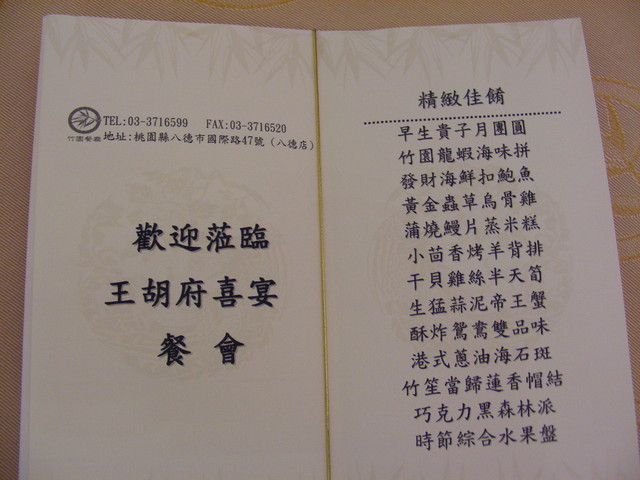 竹園餐廳
TEL:03-3716599 FAX:03-3716520
地址:桃園縣八德市國際路47號（八德店）
歡迎蒞臨
王胡府喜宴
餐會
精緻佳餚
早生貴子月團圓
竹園龍蝦海味拼
發財海鮮扣鮑魚
黃金蟲草烏骨雞
蒲燒鰻片蒸米糕
小茴香烤羊背排
干貝雞絲半天筍
生猛蒜泥帝王蟹
酥炸鴛鴦雙品味
港式蔥油海石斑
竹笙當歸蓮香帽結
巧克力黑森林派
時節綜合水果盤